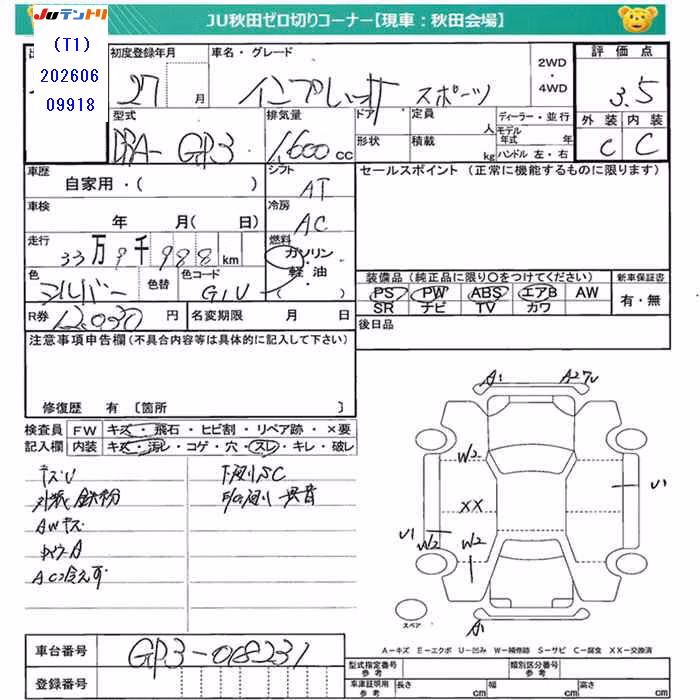 JUテントリ
JU秋田ゼロ切りコーナー【現車：秋田会場】
(T1)
202606
09918
初度登録年月 車名・グレード
27 月 インプレッサ スポーツ
2WD・4WD
評価点
3.5
外装 内装
C C
型式 排気量 ドア 定員 人 ディーラー・並行
DBA-GP3 1,600 cc 形状 積載 kg モデル年式 年
ハンドル 左・右
車歴 シフト セールスポイント（正常に機能するものに限ります）
自家用・( ) AT
車検 冷房
年 月( 日) AC
走行 燃料
33万9千988 km ガソリン・軽油・
色 色替 色コード
シルバー G1U
装備品（純正品に限り〇をつけてください） 新車保証書
PS PW ABS エアB AW 有・無
SR ナビ TV カワ
R券 12,030 円 名変期限 月 日
後日品
注意事項申告欄(不具合内容等は具体的に記入して下さい)
修復歴 有〔箇所 〕
検査員 FW キズ・飛石・ヒビ割・リペア跡・×要
記入欄 内装 キズ・汚レ・コゲ・穴・スレ・キレ・破レ
キズU 下廻りSC
外装鉄粉 異音
AWキズ
A
AC冷えず
A1 A2 W2 XX U1 U1 W2 W2 A1
スペア
A-キズ E-エクボ U-凹み W-補修跡 S-サビ C-腐食 XX-交換済
車台番号 GP3-018231
型式指定番号 参考 類別区分番号 参考
登録番号 車庫証明用 参考 長さ cm 幅 cm 高さ cm